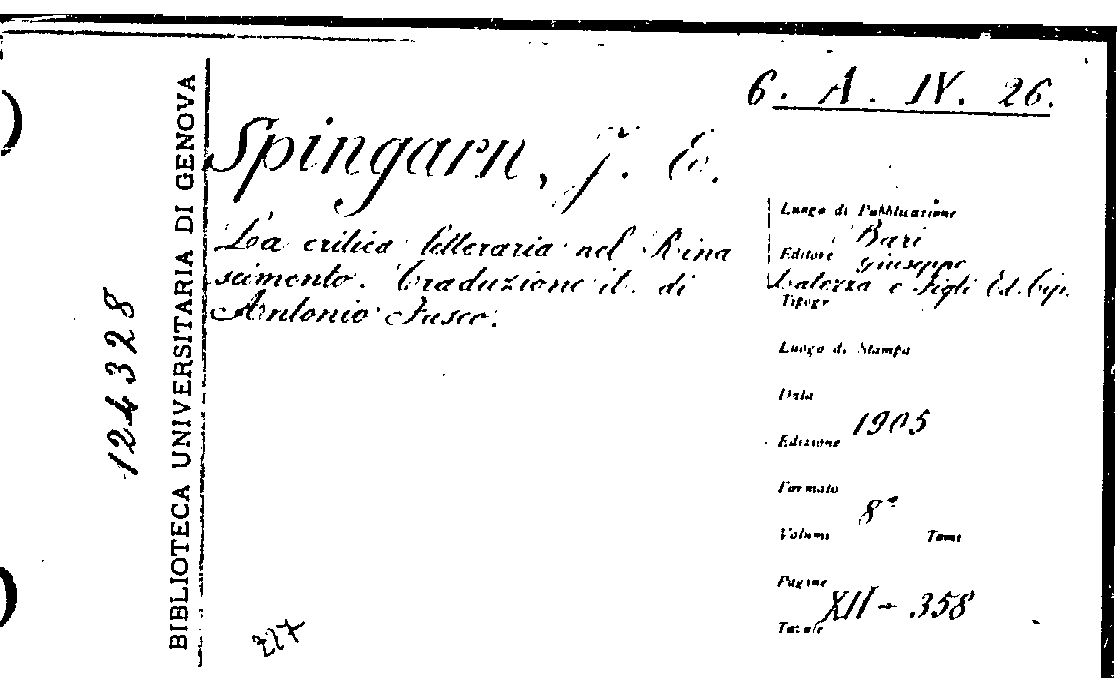 6. A. IV. 26.
BIBLIOTECA UNIVERSITARIA DI GENOVA
124328
Spingarn, J. E.
La critica letteraria nel Rina
scimento. Traduzione it. di
Antonio Fusco.
Luogo di Pubblicazione
Bari
Editore Giuseppe
Laterza e Figli Ed. Tip.
Tipogr
Luogo di Stampa
Data
1905
Edizione
Formato
8°
Volumi Tomi
Pagine
XII - 358
Tavole
227